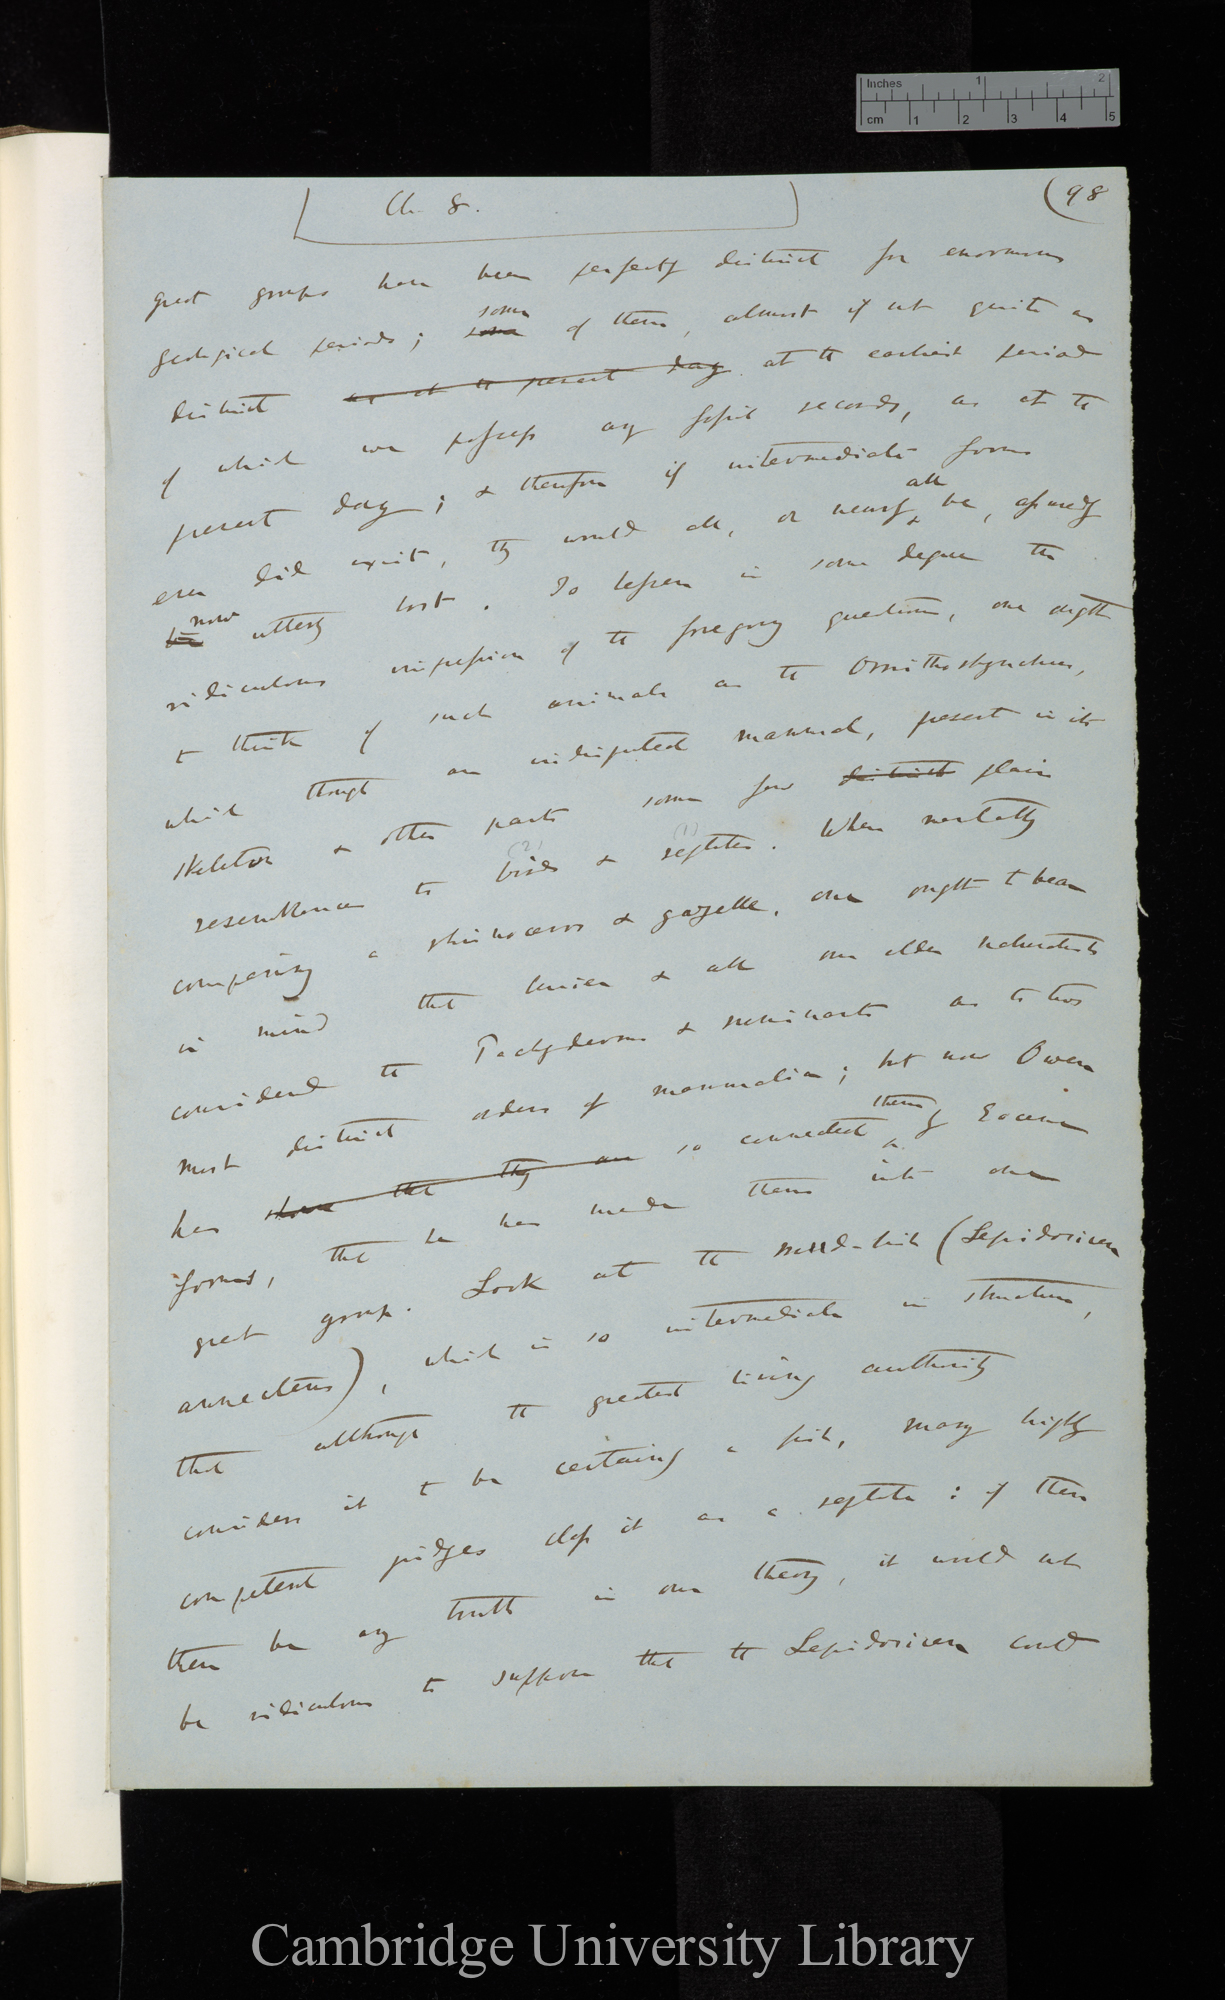 Inches 1 2
cm 1 2 3 4 5
Ch. 8.
(98
great groups have been perfectly distinct for enormous
geological periods; some some of them, almost if not quite as
distinct as at the present day at the earliest period
of which we possess any fossil records, as at the
present day; & therefore if intermediate forms
ever did exist, they would all, or nearly all be, assuredly
be now utterly lost. To lessen in some degree the
ridiculous impression of the foregoing question, one ought
to think of such animals as the Ornithorhynchus,
which though an undisputed mammal, present in its
skeleton & other parts some few distinct plain
resemblances to (2) birds & (1) reptiles. When mentally
comparing a rhinoceros & gazelle, one ought to bear
in mind that Cuvier & all our older naturalists
considered the Pachyderms & ruminants as the two
most distinct orders of mammalia; but now Owen
has shown that they are so connected them by Eocene
forms, that he has made them into one
great group. Look at the mud-fish (Lepidosiren
annectens), which is so intermediate in structure,
that although the greatest living authority
considers it to be certainly a fish, many highly
competent judges class it as a reptile: if then
there be any truth in our theory, it would not
be ridiculous to suppose that the Lepidosiren could
Cambridge University Library